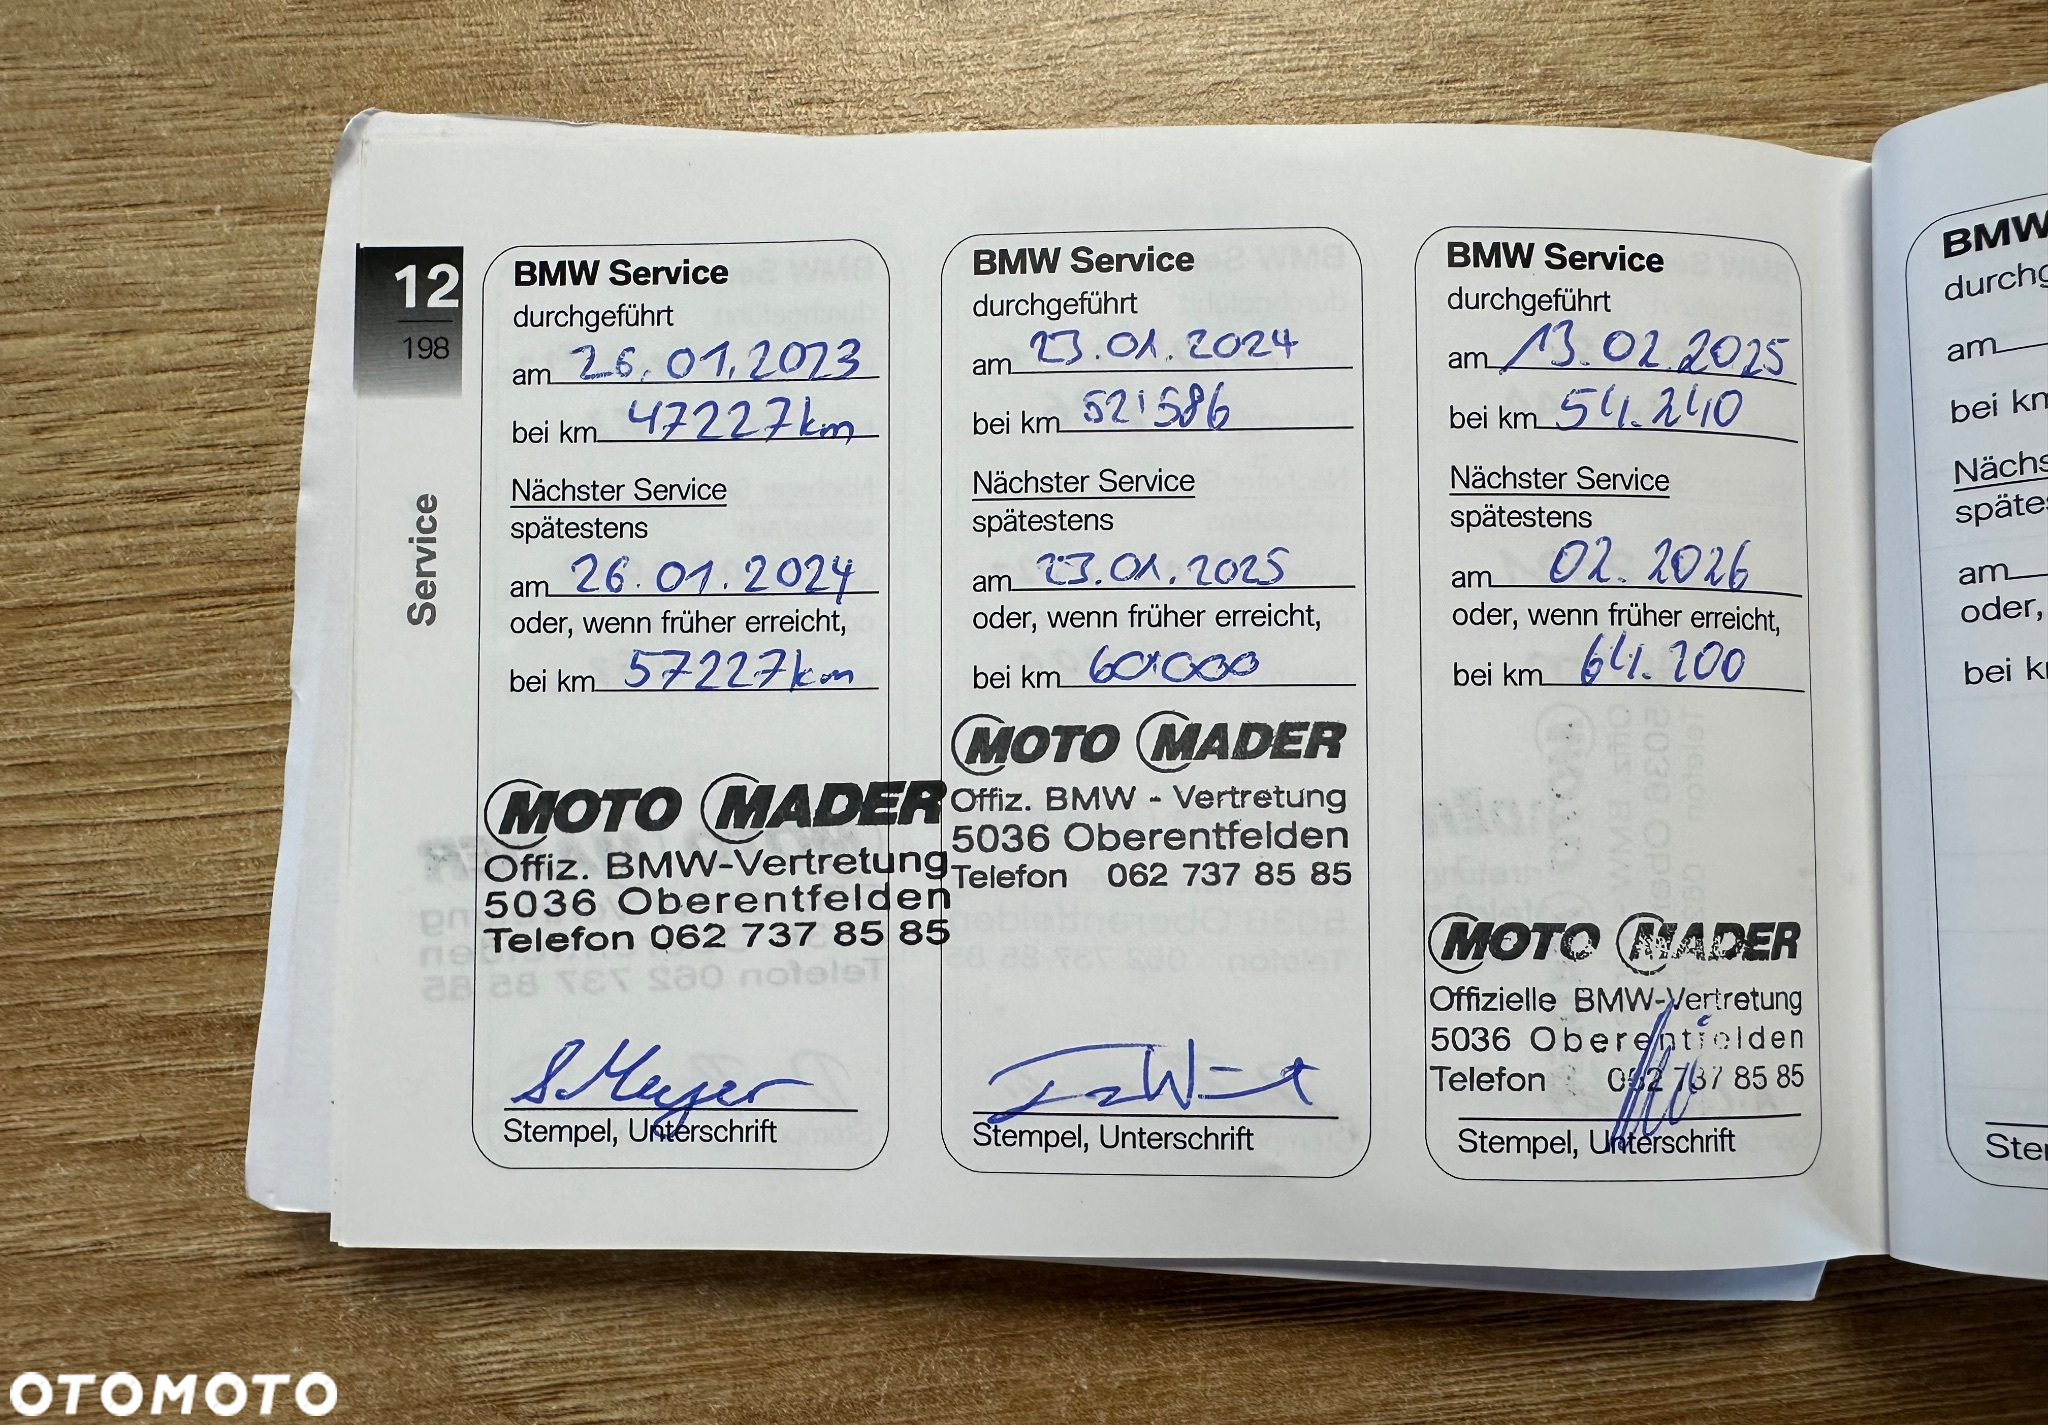 12
198
Service
BMW Service
durchgeführt
am 26.01.2023
bei km 47227km
Nächster Service
spätestens
am 26.01.2024
oder, wenn früher erreicht,
bei km 57227km
MOTO MADER
Offiz. BMW-Vertretung
5036 Oberentfelden
Telefon 062 737 85 85
S. Meyer
Stempel, Unterschrift
BMW Service
durchgeführt
am 23.01.2024
bei km 52'586
Nächster Service
spätestens
am 23.01.2025
oder, wenn früher erreicht,
bei km 60'000
MOTO MADER
Offiz. BMW - Vertretung
5036 Oberentfelden
Telefon 062 737 85 85
Stempel, Unterschrift
BMW Service
durchgeführt
am 13.02.2025
bei km 54.240
Nächster Service
spätestens
am 02.2026
oder, wenn früher erreicht,
bei km 64.200
MOTO MADER
Offizielle BMW-Vertretung
5036 Oberentfelden
Telefon 062 737 85 85
Stempel, Unterschrift
BMW
durchg
am
bei km
Nächs
späte
am
oder,
bei k
Ste
OTOMOTO